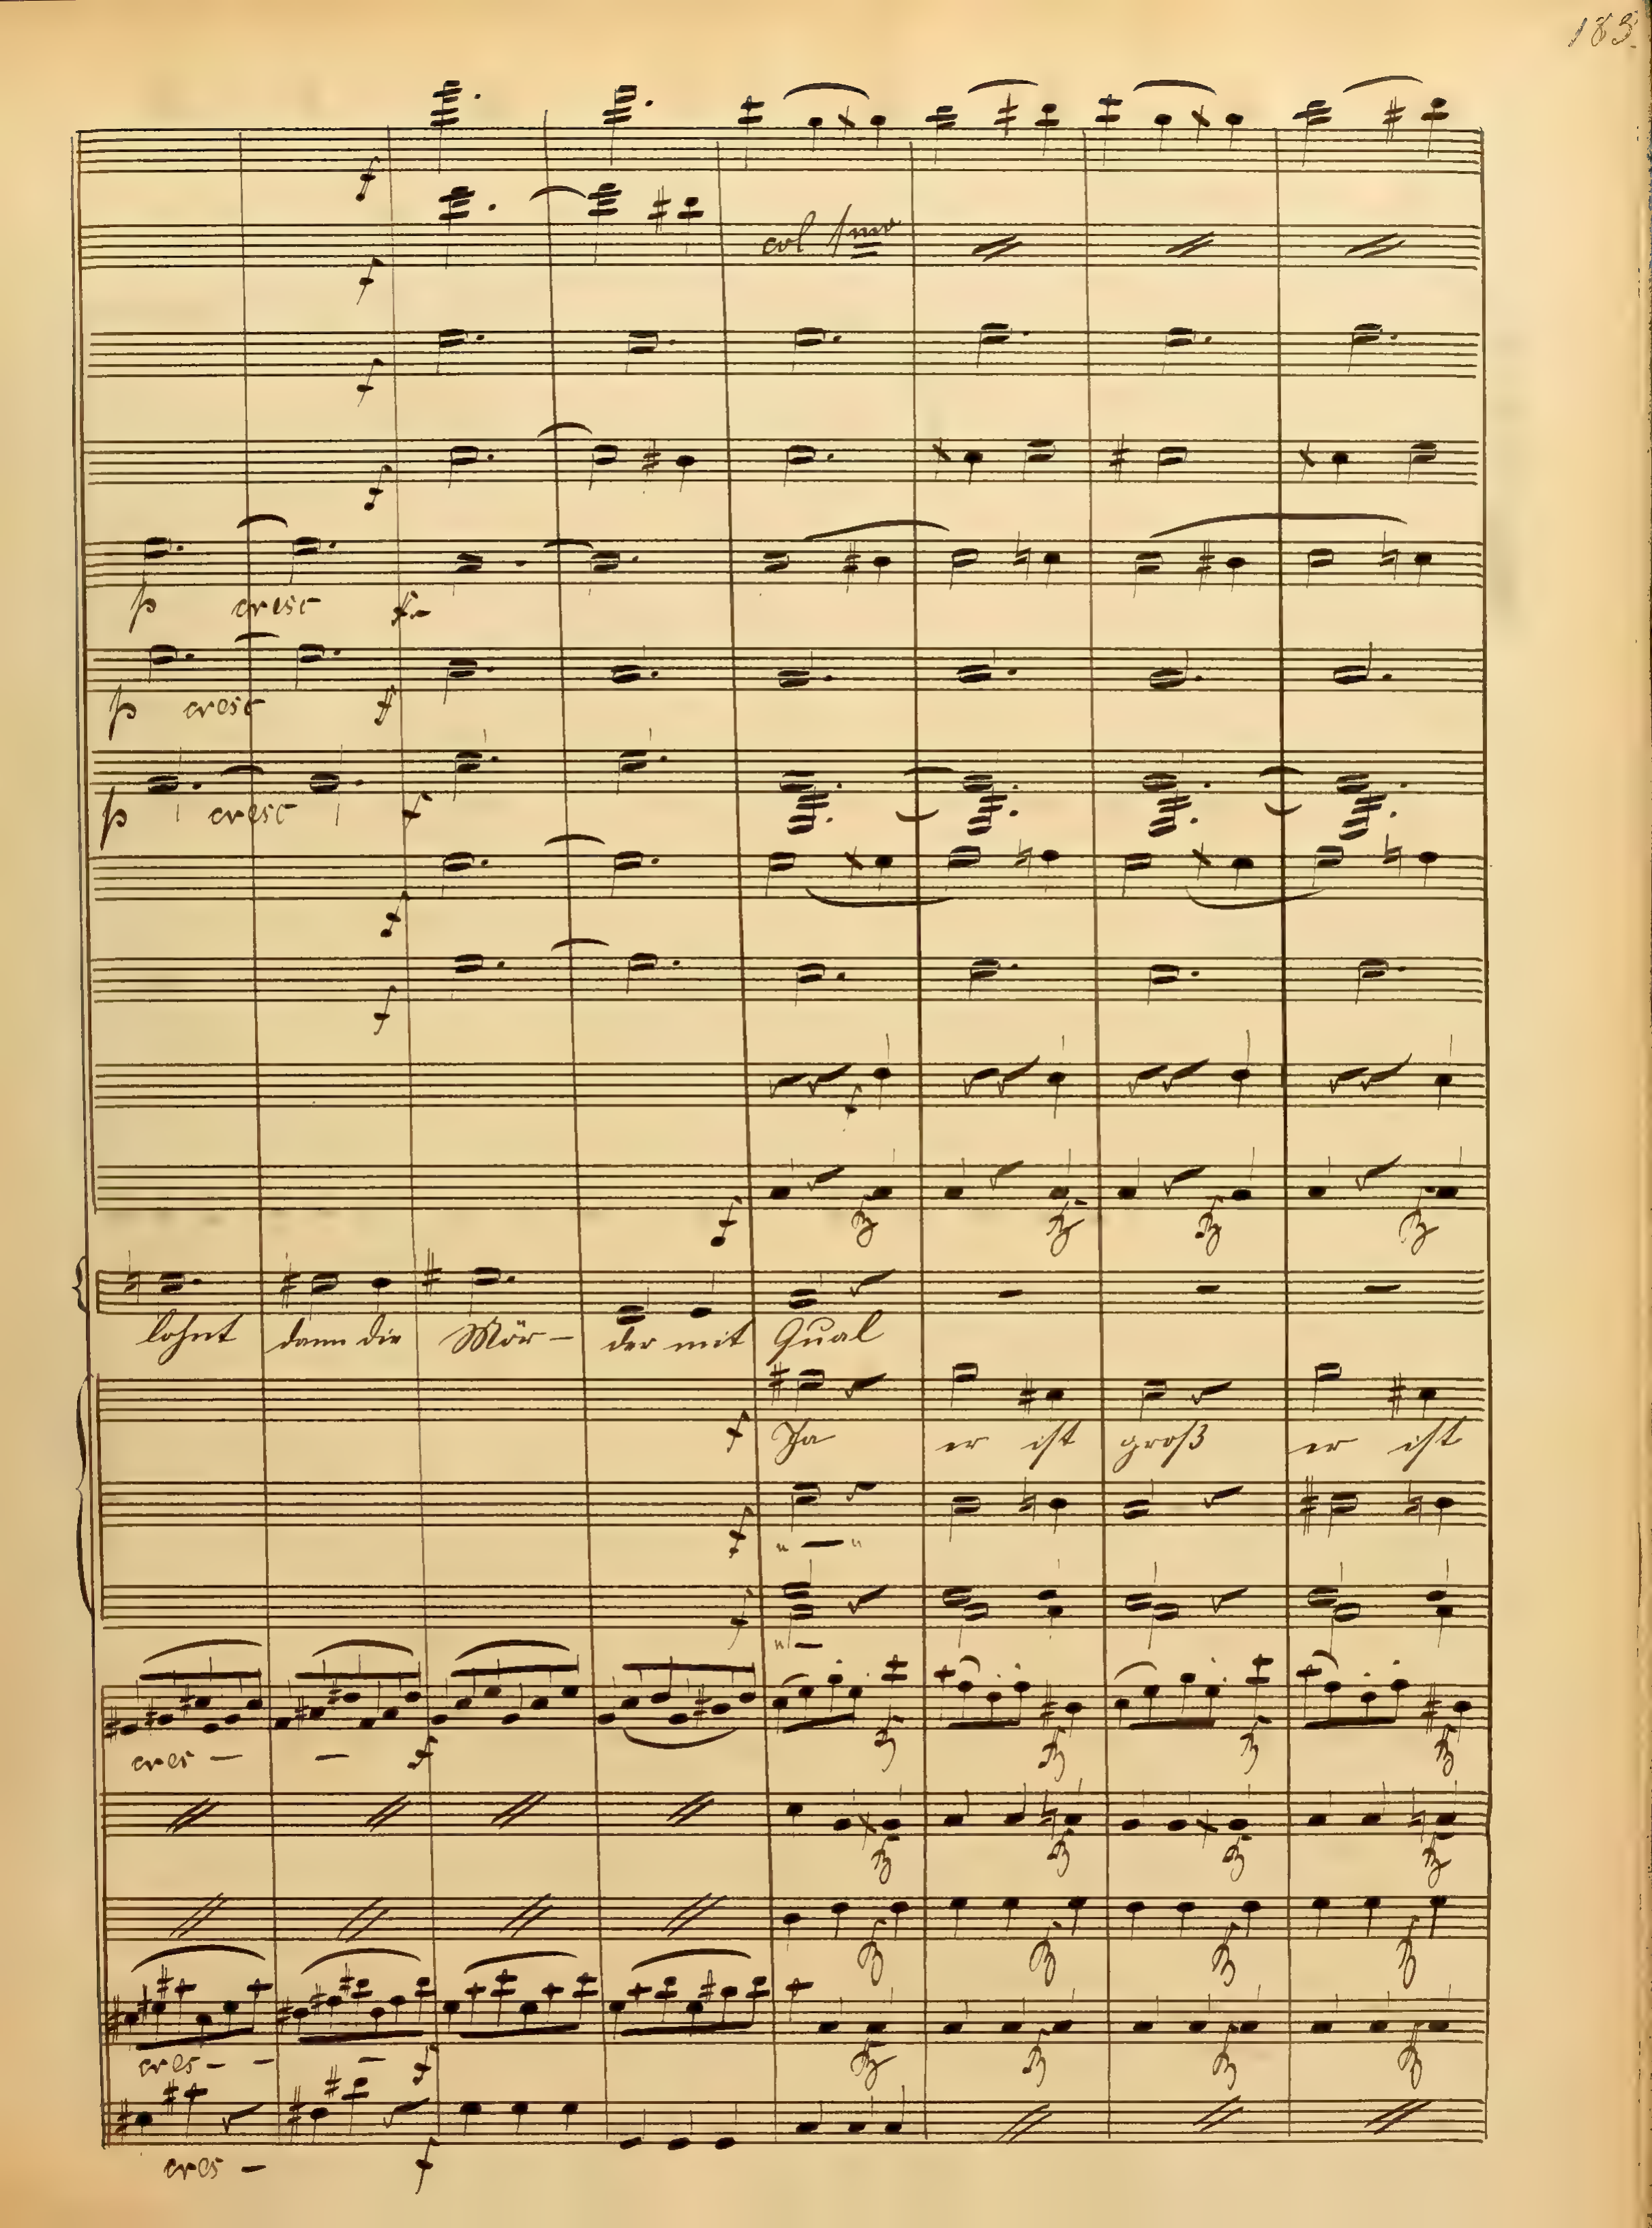 183.
f
col 1mo
f
f
f
p cresc f
p cresc f
p cresc f
f
f
f
f
lohnt dann die Mör- der mit Qual
f Ja er ist groß er ist
f " — "
f " —
cres — — f
cres - - - f
cres — f